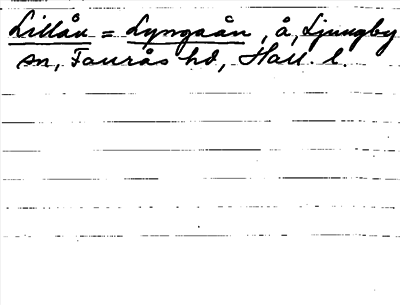 Lillån = Lyngaån, å, Ljungby
sn, Faurås hd, Hall. l.